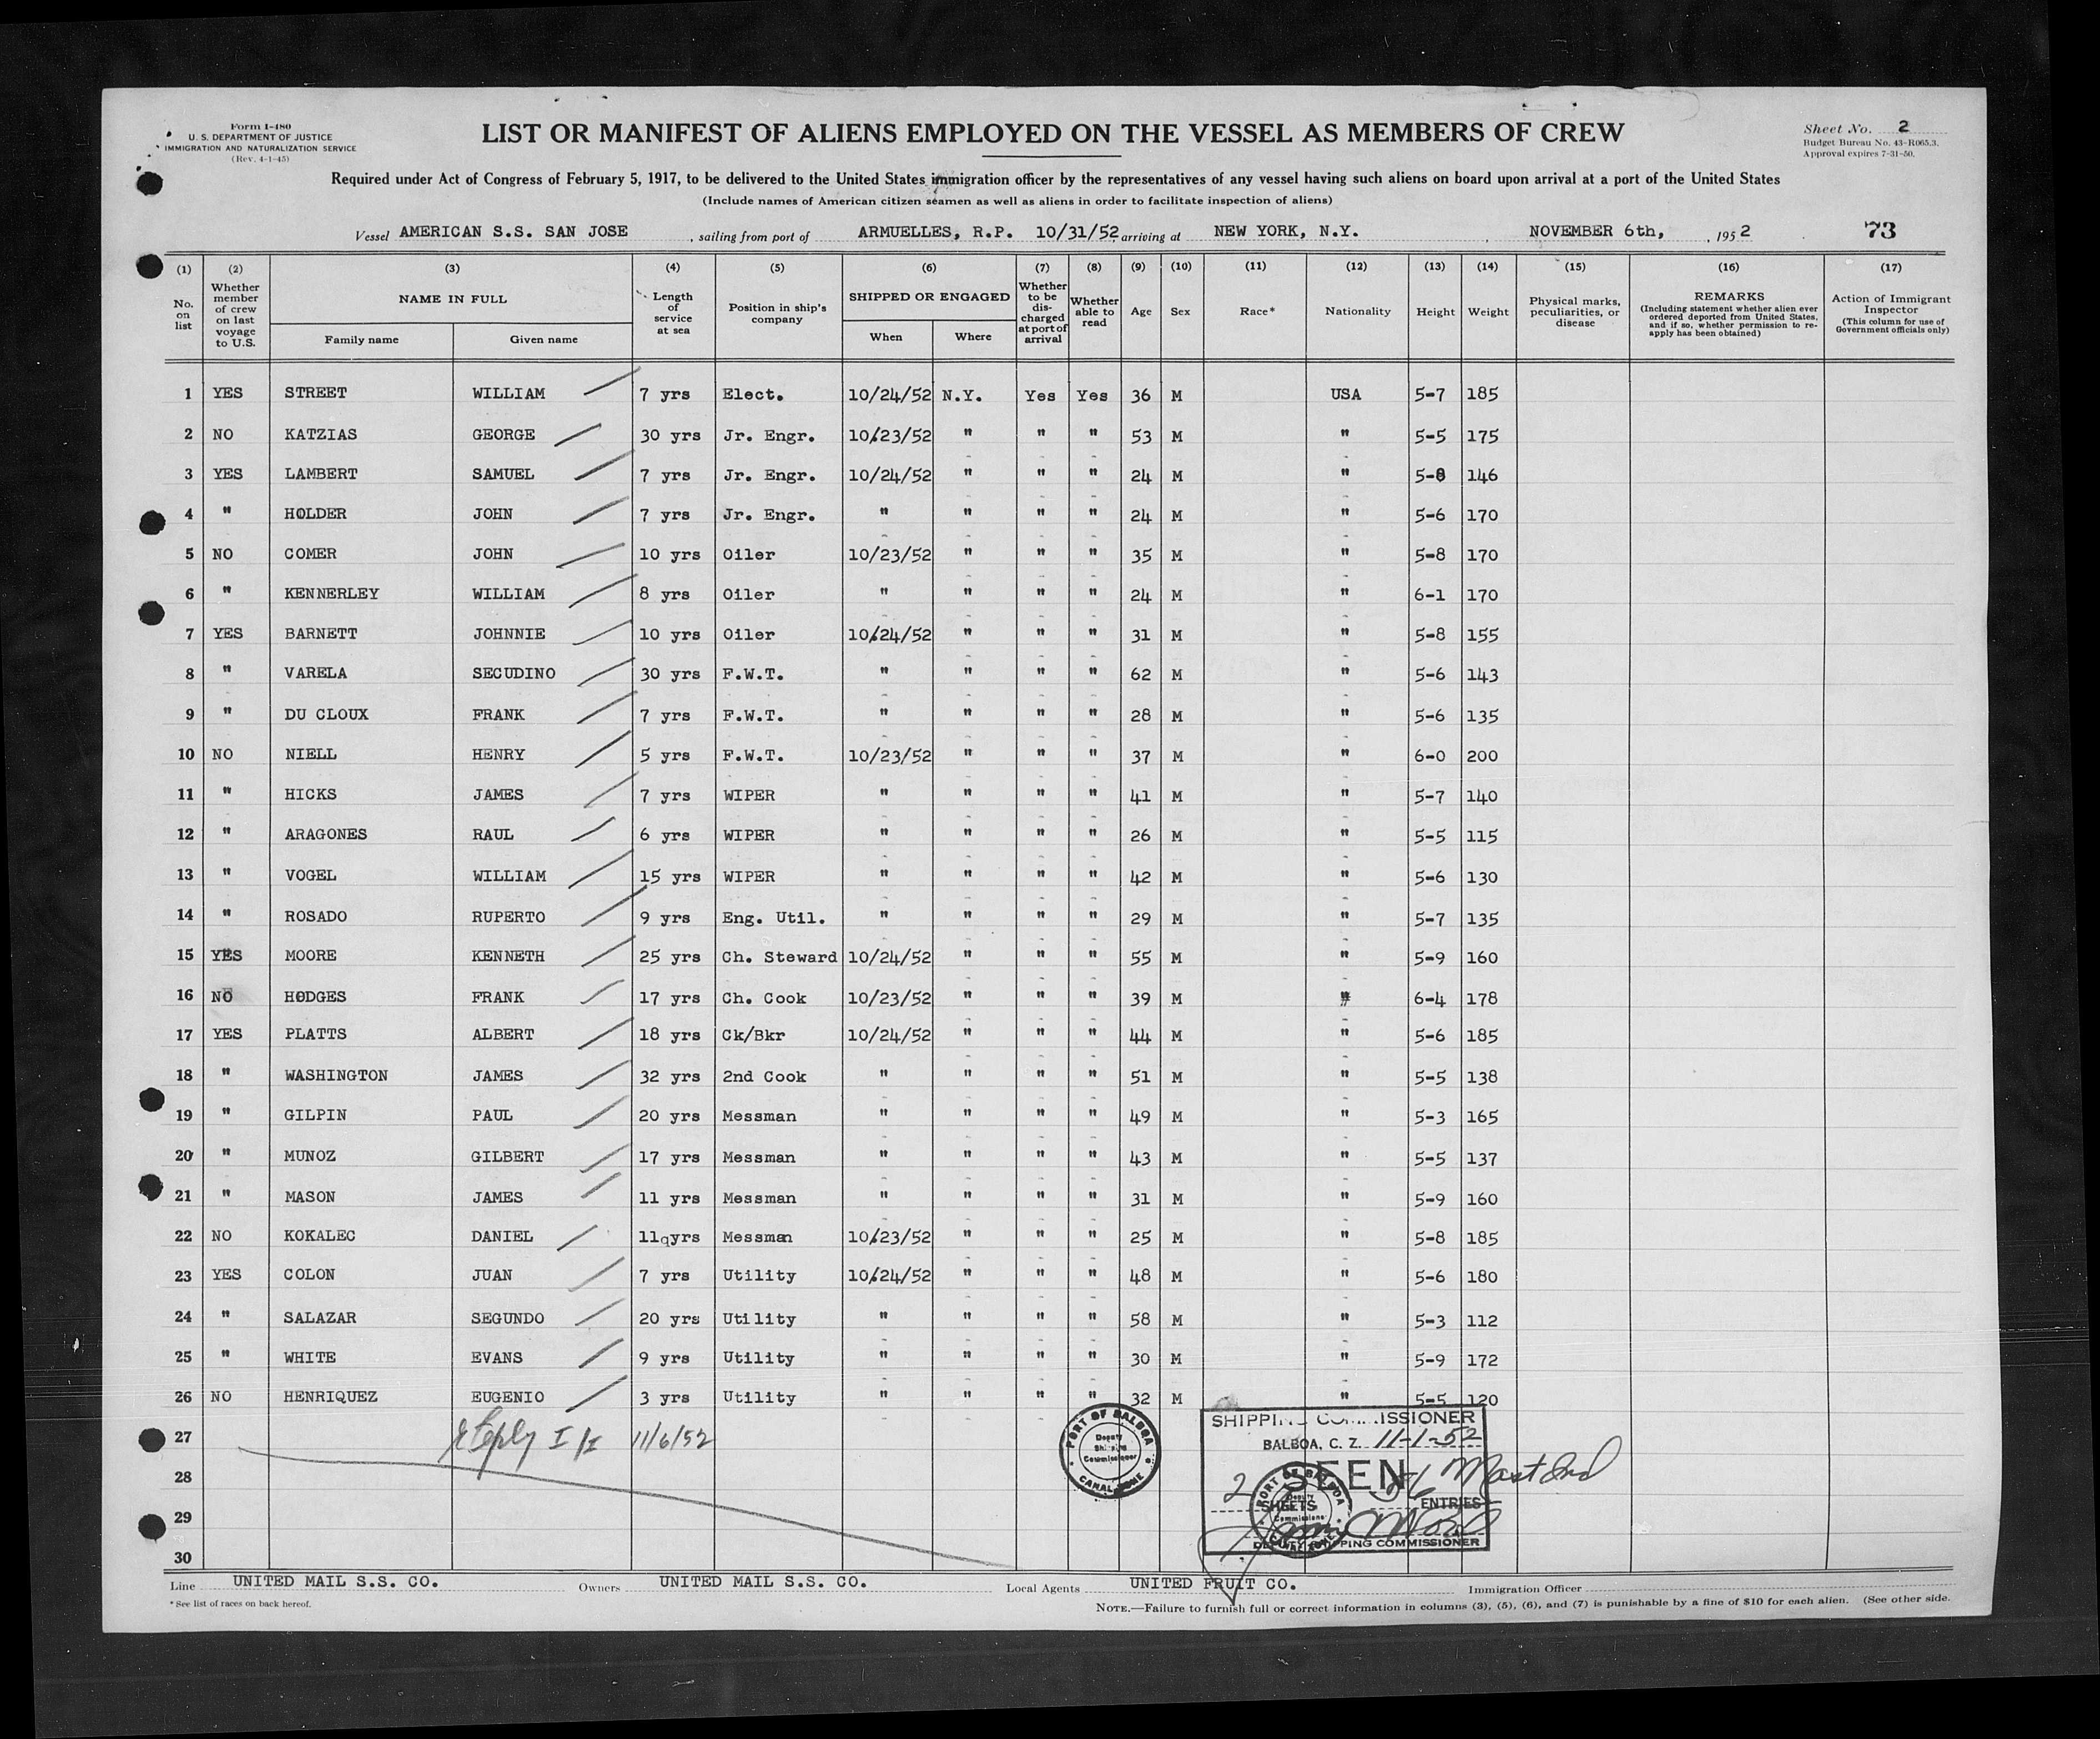 Form I-480
U. S. DEPARTMENT OF JUSTICE
IMMIGRATION AND NATURALIZATION SERVICE
(Rev. 4-1-45)
LIST OR MANIFEST OF ALIENS EMPLOYED ON THE VESSEL AS MEMBERS OF CREW
Sheet No. 2
Budget Bureau No. 43-R065.3.
Approval expires 7-31-50.
Required under Act of Congress of February 5, 1917, to be delivered to the United States immigration officer by the representatives of any vessel having such aliens on board upon arrival at a port of the United States
(Include names of American citizen seamen as well as aliens in order to facilitate inspection of aliens)
Vessel AMERICAN S.S. SAN JOSE, sailing from port of ARMUELLES, R.P. 10/31/52 arriving at NEW YORK, N.Y. NOVEMBER 6th, , 1952 73
(1) No. on list
(2) Whether member of crew on last voyage to U.S.
(3) NAME IN FULL Family name Given name
(4) Length of service at sea
(5) Position in ship's company
(6) SHIPPED OR ENGAGED When Where
(7) Whether to be discharged at port of arrival
(8) Whether able to read
(9) Age
(10) Sex
(11) Race*
(12) Nationality
(13) Height
(14) Weight
(15) Physical marks, peculiarities, or disease
(16) REMARKS (Including statement whether alien ever ordered deported from United States, and if so, whether permission to reapply has been obtained)
(17) Action of Immigrant Inspector (This column for use of Government officials only)
1 YES STREET WILLIAM 7 yrs Elect. 10/24/52 N.Y. Yes Yes 36 M USA 5-7 185
2 NO KATZIAS GEORGE 30 yrs Jr. Engr. 10/23/52 " " " 53 M " 5-5 175
3 YES LAMBERT SAMUEL 7 yrs Jr. Engr. 10/24/52 " " " 24 M " 5-8 146
4 " HOLDER JOHN 7 yrs Jr. Engr. " " " " 24 M " 5-6 170
5 NO COMER JOHN 10 yrs Oiler 10/23/52 " " " 35 M " 5-8 170
6 " KENNERLEY WILLIAM 8 yrs Oiler " " " " 24 M " 6-1 170
7 YES BARNETT JOHNNIE 10 yrs Oiler 10/24/52 " " " 31 M " 5-8 155
8 " VARELA SECUDINO 30 yrs F.W.T. " " " " 62 M " 5-6 143
9 " DU CLOUX FRANK 7 yrs F.W.T. " " " " 28 M " 5-6 135
10 NO NIELL HENRY 5 yrs F.W.T. 10/23/52 " " " 37 M " 6-0 200
11 " HICKS JAMES 7 yrs WIPER " " " " 41 M " 5-7 140
12 " ARAGONES RAUL 6 yrs WIPER " " " " 26 M " 5-5 115
13 " VOGEL WILLIAM 15 yrs WIPER " " " " 42 M " 5-6 130
14 " ROSADO RUPERTO 9 yrs Eng. Util. " " " " 29 M " 5-7 135
15 YES MOORE KENNETH 25 yrs Ch. Steward 10/24/52 " " " 55 M " 5-9 160
16 NO HODGES FRANK 17 yrs Ch. Cook 10/23/52 " " " 39 M " 6-4 178
17 YES PLATTS ALBERT 18 yrs Ck/Bkr 10/24/52 " " " 44 M " 5-6 185
18 " WASHINGTON JAMES 32 yrs 2nd Cook " " " " 51 M " 5-5 138
19 " GILPIN PAUL 20 yrs Messman " " " " 49 M " 5-3 165
20 " MUNOZ GILBERT 17 yrs Messman " " " " 43 M " 5-5 137
21 " MASON JAMES 11 yrs Messman " " " " 31 M " 5-9 160
22 NO KOKALEC DANIEL 11qyrs Messman 10/23/52 " " " 25 M " 5-8 185
23 YES COLON JUAN 7 yrs Utility 10/24/52 " " " 48 M " 5-6 180
24 " SALAZAR SEGUNDO 20 yrs Utility " " " " 58 M " 5-3 112
25 " WHITE EVANS 9 yrs Utility " " " " 30 M " 5-9 172
26 NO HENRIQUEZ EUGENIO 3 yrs Utility " " " " 32 M " 5-5 120
27 11/6/52
28
29
30
PORT OF BALBOA
Deputy Shipping Commissioner
CANAL ZONE
SHIPPING COMMISSIONER
BALBOA, C. Z. 11-1-52
SEEN
2 SHEETS ENTRIES
DEPUTY SHIPPING COMMISSIONER
PORT OF BALBOA
Deputy
Commissioner
Line UNITED MAIL S.S. CO. Owners UNITED MAIL S.S. CO. Local Agents UNITED FRUIT CO. Immigration Officer
* See list of races on back hereof.
NOTE.—Failure to furnish full or correct information in columns (3), (5), (6), and (7) is punishable by a fine of $10 for each alien. (See other side.